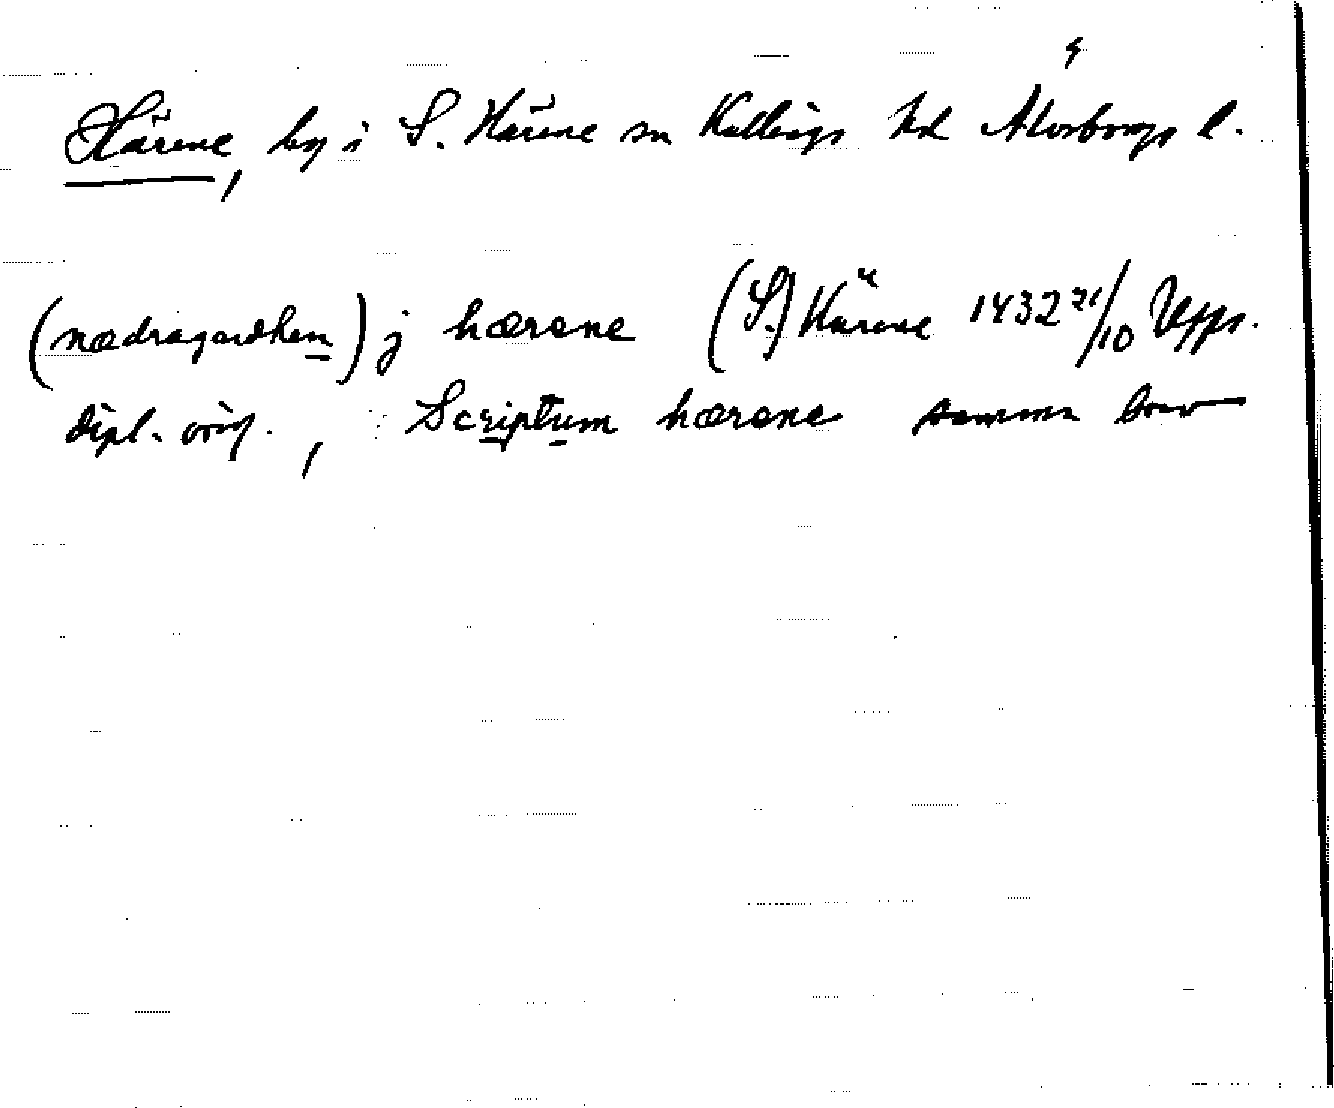 Härene, by i S. Härene sn Kullings hd Älvsborgs l.
(nædragardhen) j hærene (S.) Härene 1432 21/10 Upps.
dipl. orig., Scriptum hærene samma brev